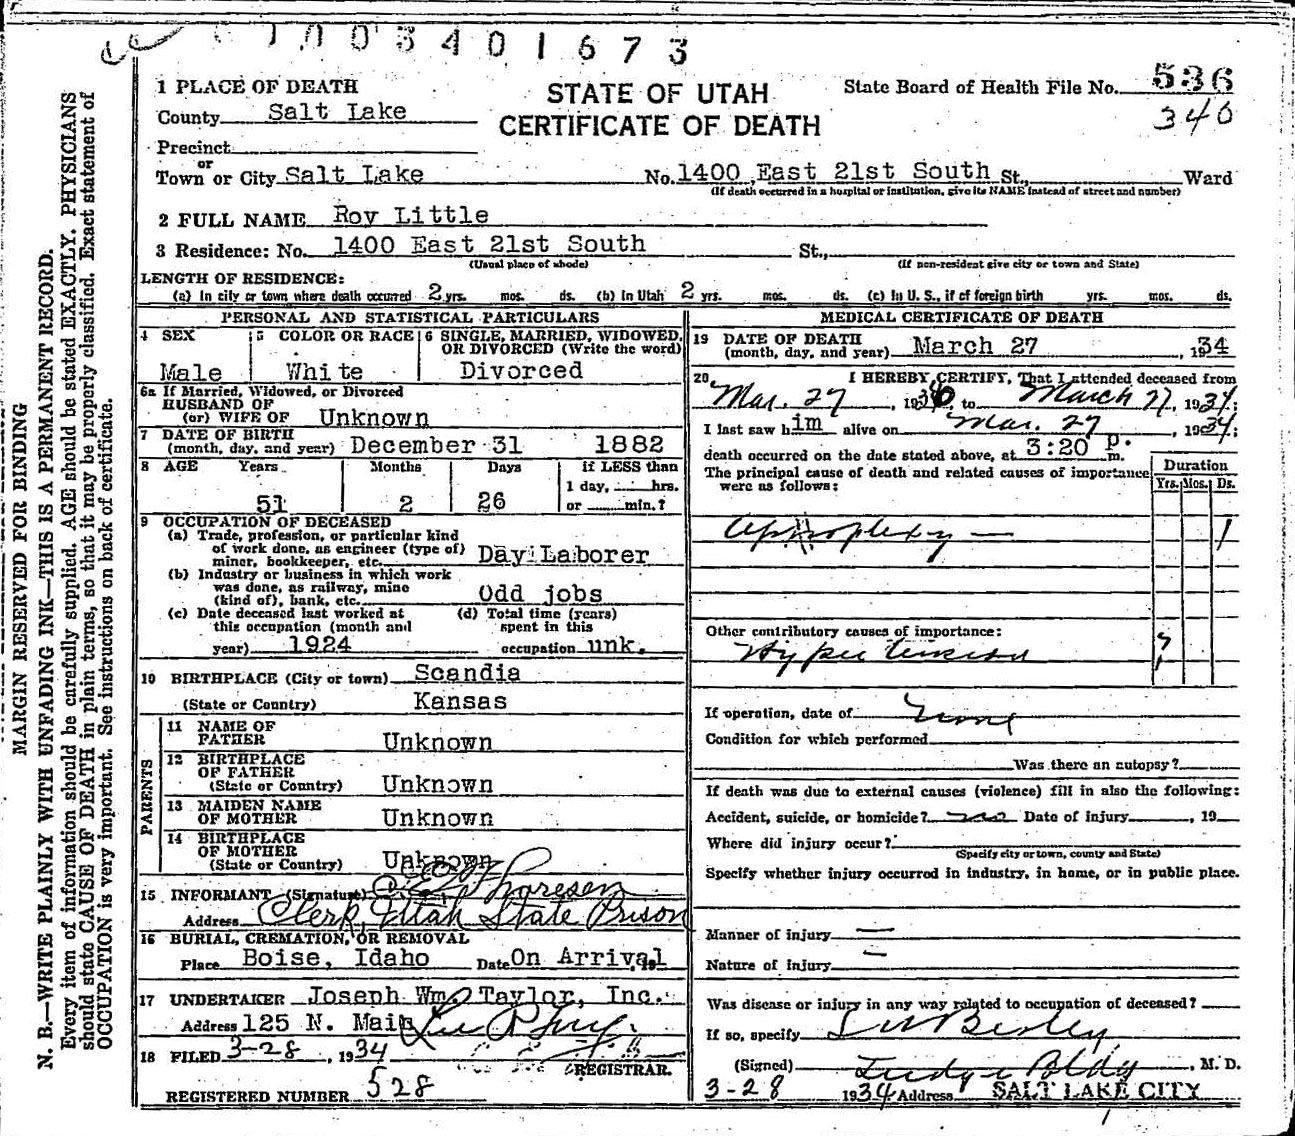 1003401673
1 PLACE OF DEATH
County Salt Lake
Precinct
or
Town or City Salt Lake
STATE OF UTAH
CERTIFICATE OF DEATH
State Board of Health File No. 536
340
No. 1400 East 21st South St., Ward
(If death occurred in a hospital or institution, give its NAME instead of street and number)
2 FULL NAME Roy Little
3 Residence: No. 1400 East 21st South St.,
(Usual place of abode) (If non-resident give city or town and State)
LENGTH OF RESIDENCE:
(a) In city or town where death occurred 2 yrs. mos. ds. (b) In Utah 2 yrs. mos. ds. (c) In U. S., if of foreign birth yrs. mos. ds.
PERSONAL AND STATISTICAL PARTICULARS
4 SEX Male
5 COLOR OR RACE White
6 SINGLE, MARRIED, WIDOWED, OR DIVORCED (Write the word) Divorced
6a If Married, Widowed, or Divorced
HUSBAND OF
(or) WIFE OF Unknown
7 DATE OF BIRTH
(month, day, and year) December 31 1882
8 AGE Years Months Days If LESS than
1 day, hrs.
51 2 26 or min.?
9 OCCUPATION OF DECEASED
(a) Trade, profession, or particular kind
of work done, as engineer (type of)
miner, bookkeeper, etc. Day Laborer
(b) Industry or business in which work
was done, as railway, mine
(kind of), bank, etc. Odd jobs
(c) Date deceased last worked at
this occupation (month and
year) 1924
(d) Total time (years)
spent in this
occupation unk.
10 BIRTHPLACE (City or town) Scandia
(State or Country) Kansas
PARENTS
11 NAME OF
FATHER Unknown
12 BIRTHPLACE
OF FATHER
(State or Country) Unknown
13 MAIDEN NAME
OF MOTHER Unknown
14 BIRTHPLACE
OF MOTHER
(State or Country) Unknown
15 INFORMANT (Signature) Thoresen
Address Clerk, Utah State Prison
16 BURIAL, CREMATION, OR REMOVAL
Place Boise, Idaho Date On Arrival, 19
17 UNDERTAKER Joseph Wm. Taylor, Inc.
Address 125 N. Main
18 FILED 3-28, 1934
REGISTRAR.
REGISTERED NUMBER 528
MEDICAL CERTIFICATE OF DEATH
19 DATE OF DEATH
(month, day, and year) March 27, 1934
20. I HEREBY CERTIFY, That I attended deceased from
Mar. 27, 1934, to March 27, 1934;
I last saw him alive on Mar. 27, 1934;
death occurred on the date stated above, at 3:20 p. m.
The principal cause of death and related causes of importance
were as follows:
Duration
Yrs. Mos. Ds.
Apoplexy — 1
Other contributory causes of importance:
Hypertension ?
If operation, date of None
Condition for which performed
Was there an autopsy?
If death was due to external causes (violence) fill in also the following:
Accident, suicide, or homicide? no Date of injury , 19
Where did injury occur?
(Specify city or town, county and State)
Specify whether injury occurred in industry, in home, or in public place.
Manner of injury —
Nature of injury —
Was disease or injury in any way related to occupation of deceased?
If so, specify
(Signed) Judge Bldg, M. D.
3-28 1934 Address SALT LAKE CITY
MARGIN RESERVED FOR BINDING
N. B.—WRITE PLAINLY WITH UNFADING INK—THIS IS A PERMANENT RECORD.
Every item of information should be carefully supplied. AGE should be stated EXACTLY. PHYSICIANS
should state CAUSE OF DEATH in plain terms, so that it may be properly classified. Exact statement of
OCCUPATION is very important. See instructions on back of certificate.